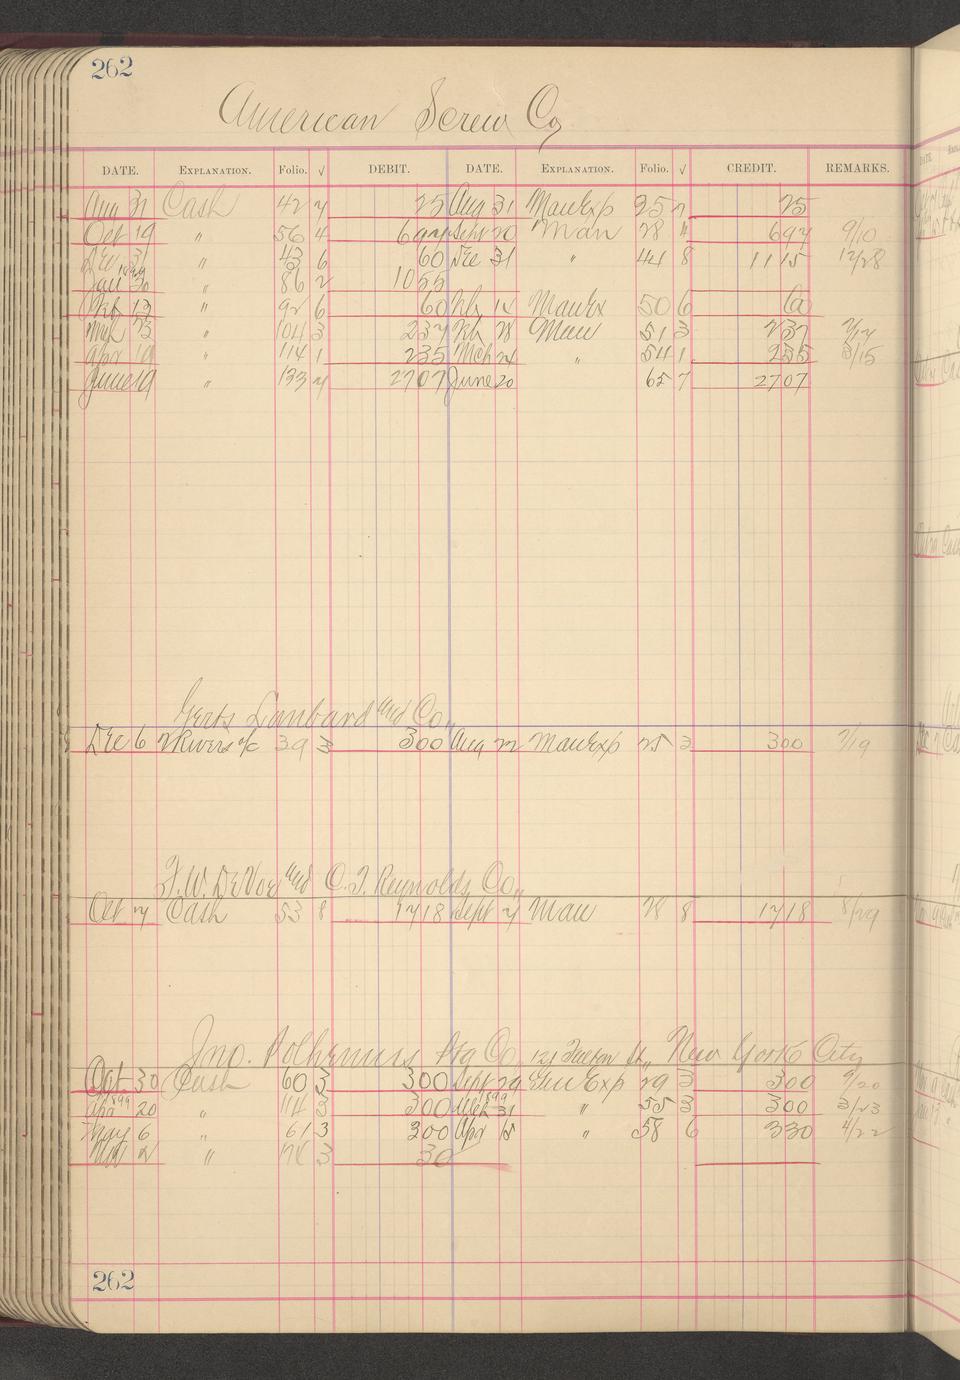 262
American Screw Co
DATE. EXPLANATION. Folio. √ DEBIT. DATE. EXPLANATION. Folio. √ CREDIT. REMARKS.
Aug 31 Cash 42 7 25 Aug 31 ManExp 25 7 25
Oct 19 " 56 4 697 Sept 20 Man 28 " 697 9/10
Dec 31 " 43 6 60 Dec 31 " 44 8 1115 12/28
Jan 1899 30 " 86 2 1055
Feb 13 " 92 6 60 Feb 14 ManEx 50 6 60
Mch 23 " 104 3 237 Feb 28 Man 51 3 237 2/17
Apr 19 " 114 1 235 Mch 24 " 54 1 235 3/15
June 19 " 133 7 2707 June 20 65 7 2707
Gerts Lumbard and Co.
Dec 6 2Rivers a/c 39 3 300 Aug 22 ManExp 25 3 300 7/19
F.W. DeVoe and C.T. Reynolds Co.,
Oct 7 Cash 53 8 1718 Sept 7 Man 28 8 1718 8/29
Jno. Polhemus Ptg Co. 121 Fulton St., New York City
Oct 30 Cash 60 3 300 Sept 29 Gen Exp 29 3 300 9/20
Apr 1899 20 " 114 3 300 Mch 1899 31 " 55 3 300 3/23
May 6 " 61 3 300 Apr 15 " 58 6 330 4/22
" 3 30
262